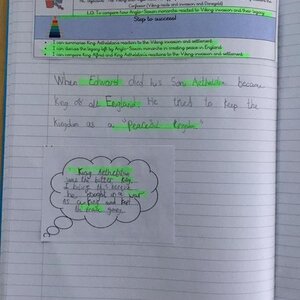 Confessor (Viking raids and invasion and Danegeld)
L.O: To compare how Anglo-Saxon monarchs reacted to Viking invasion and their legacy.
Step to success!
I can summarise King Aethelstan's reactions to the Viking invasion and settlement.
I can describe the legacy left by Anglo-Saxon monarchs in creating peace in England.
I can compare King Alfred and King Aethelstan's reactions to Viking invasion and settlement.
When Edward died his Son Aethelstan became
King of all England. He tried to keep the
Kingdom as a "peaceful Kingdom"
King Aethelstan
was the better King
he fought in a war
as a King and kept
the peace